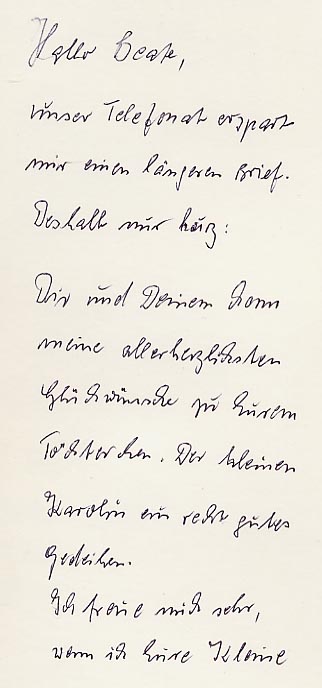 Hallo Beate,
unser Telefonat erspart
mir einen längeren Brief.
Deshalb nur kurz:
Dir und Deinem Mann
meine allerherzlichsten
Glückwünsche zu Eurem
Töchterchen. Der kleinen
Karolin ein recht gutes
Gedeihen.
Ich freue mich sehr,
wenn ich Eure Kleine